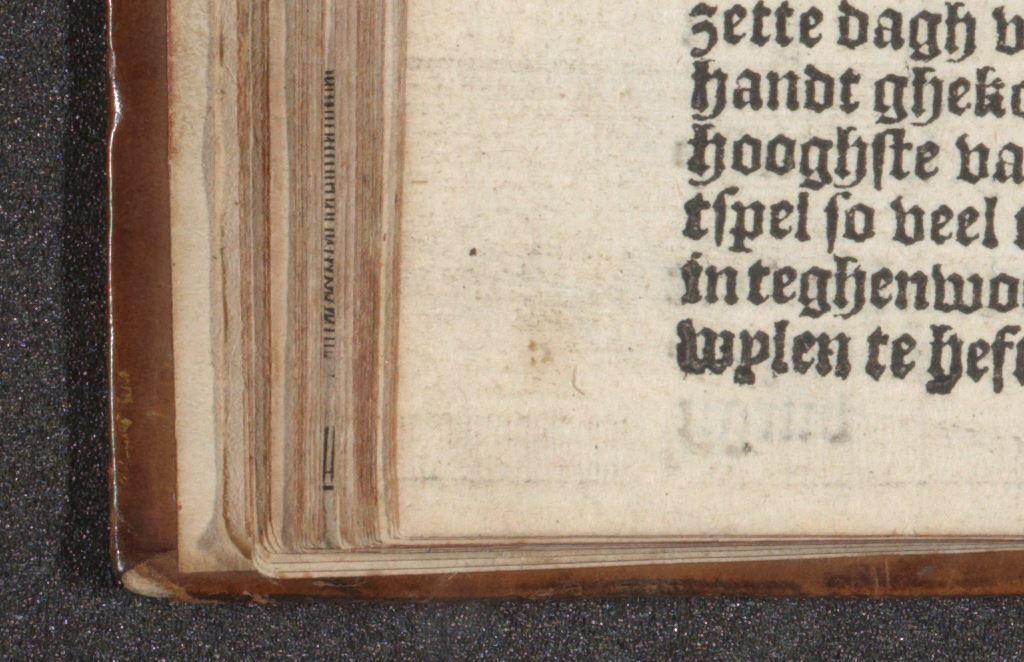 zette dagh v
handt gheko
hooghste va
tspel so veel
in teghenwo
wylen te hef